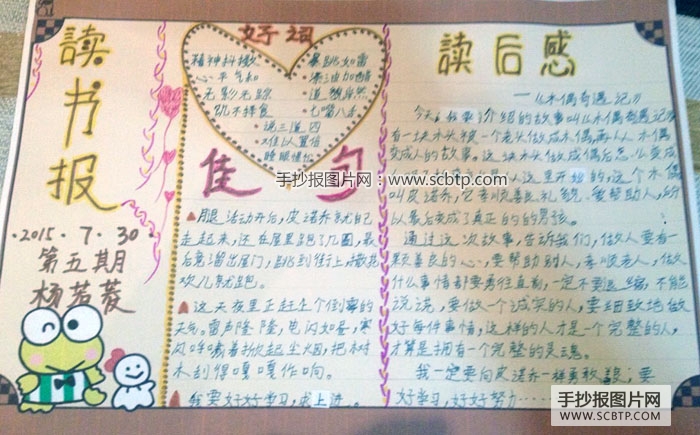 读书报
·2015·7·30·
第五期
杨若菱
好词
精神抖擞 暴跳如雷
心平气和 添油加醋
无影无踪 道貌岸然
饥不择食 七嘴八舌
说三道四
难以置信
睡眼惺忪
佳句
腿活动开后,皮诺乔就自己
走起来,还在屋里跑了几圈,最
后竟溜出屋门,跳到街上,撒
欢儿就跑。
这天夜里正赶上个倒霉的
天气。雷声隆隆,电闪如昼,寒
风呼啸着掀起尘烟,把树
木刮得嘎嘎作响。
我要好好学习,求上进。
读后感
—《木偶奇遇记》
今天,我要介绍的故事叫《木偶奇遇记》
有一块木头被一个老头做成木偶,再从木偶
变成人的故事。这块木头做成偶后怎么变成
这里开始的,这个木偶
叫皮诺乔,它孝顺善良礼貌,爱帮助人,所
以最后变成了真正的的男孩。
通过这次故事,告诉我们,做人要有一
颗善良的心,要帮助别人,孝顺老人,做
什么事情都要勇往直前,一定不要退缩,不能
说谎,要做一个诚实的人,要细致地做
好每件事情,这样的人才是一个完整的人,
才算是拥有一个完整的灵魂。
我一定要向皮诺乔一样勇敢善良,要
好学习,好好努力……
手抄报图片网:www.scbtp.com
手抄报图片网
WWW.SCBTP.COM